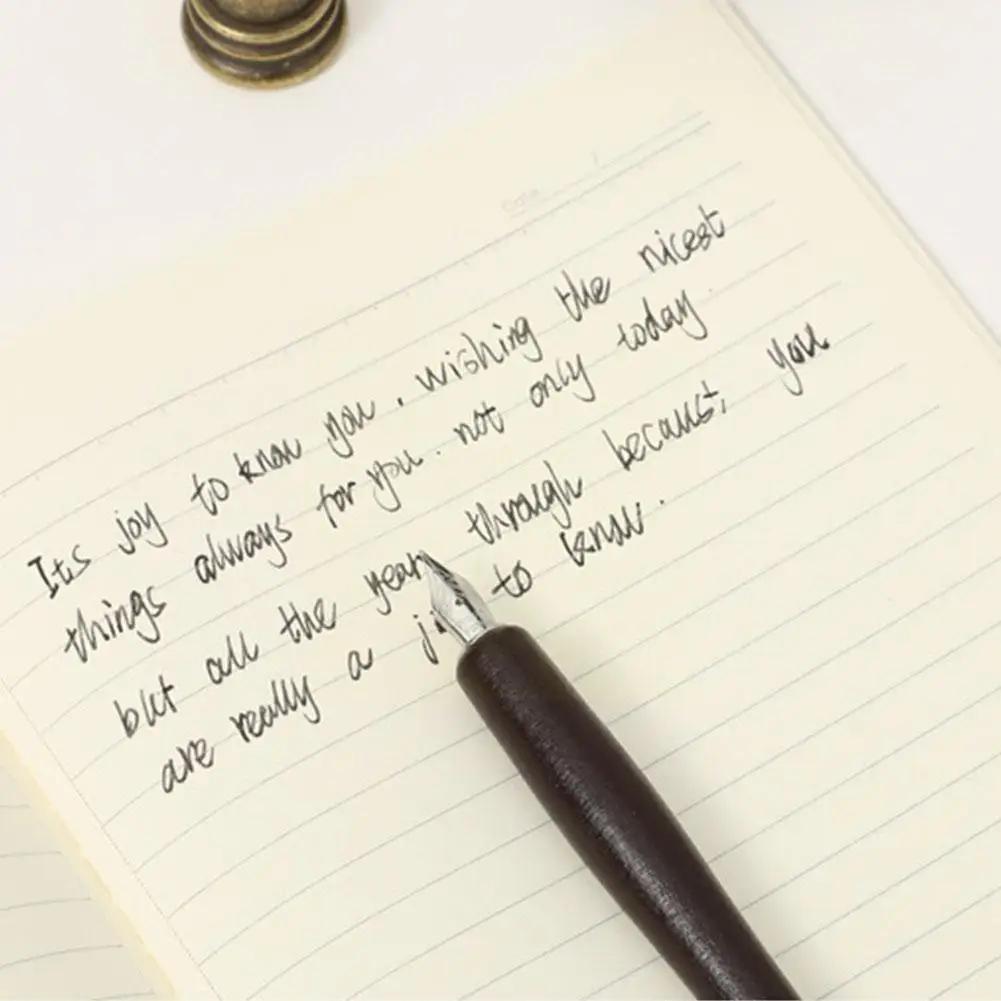 Date /
Its joy to know you . wishing the nicest
things always for you . not only today
but all the year through because, you
are really a to know .